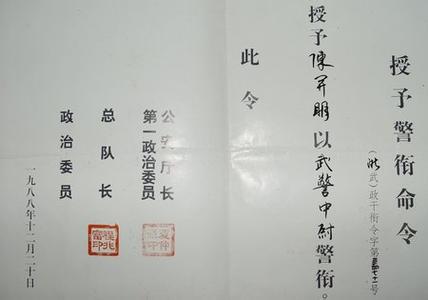 授予警衔命令
(浙武)政干衔令字第号
授予陳昇明以武警中尉警衔。
此令
公安厅长
第一政治委员
总队长
政治委员
程兆富印
一九八八年十二月二十日